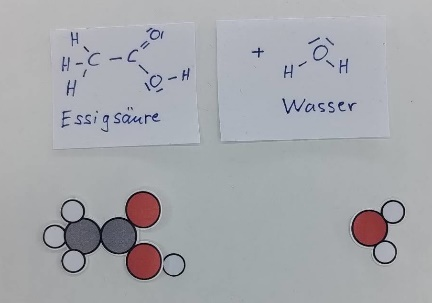 H
H - C - C = O
H
O - H
Essigsäure
+
O
H H
Wasser